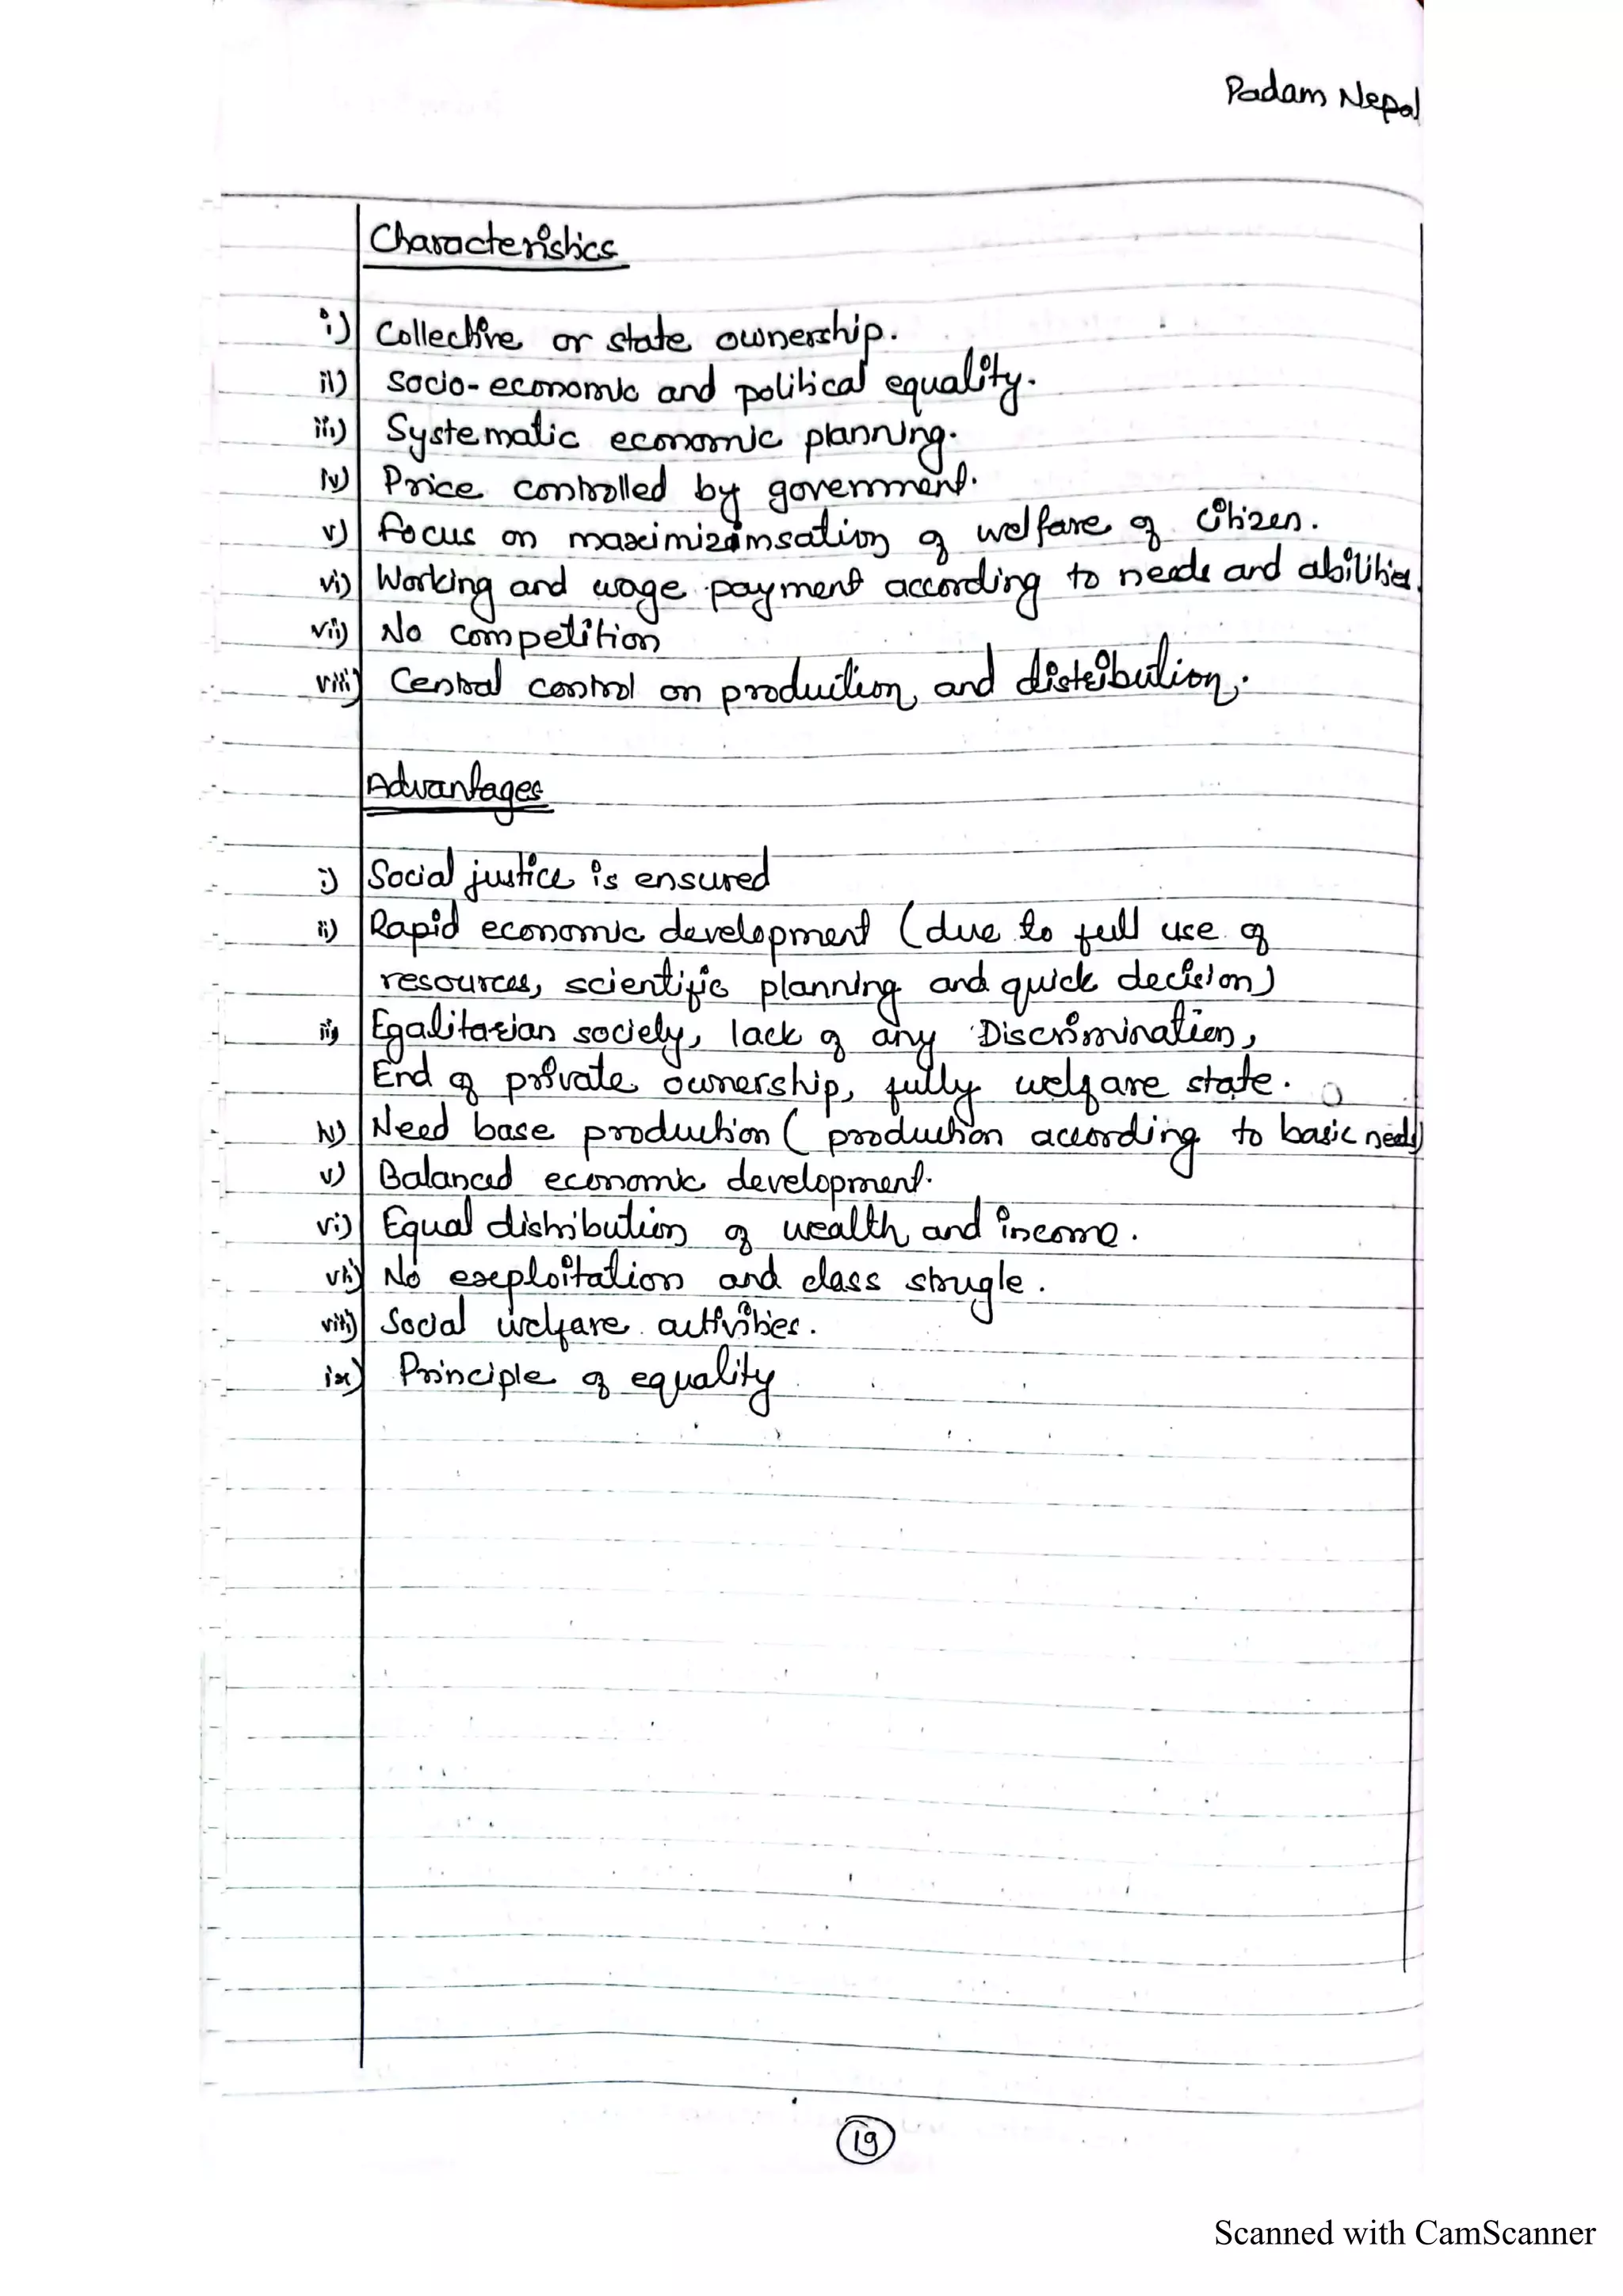 Padam Nepal
Characteristics
i) Collective or state ownership.
ii) Socio-economic and political equality.
iii) Systematic economic planning.
iv) Price controlled by government.
v) Focus on maximizamsation of welfare of citizen.
vi) Working and wage payment according to needs and abilities.
vii) No competition
viii) Central control on production and distribution.
Advantages
i) Social justice is ensured
ii) Rapid economic development (due to full use of
resources, scientific planning and quick decision)
iii) Egalitarian society, lack of any Discrimination,
End of private ownership, fully welfare state.
iv) Need base production (production according to basic needs)
v) Balanced economic development.
vi) Equal distribution of wealth and income.
vii) No exploitation and class strugle.
viii) Social welfare activities.
ix) Principle of equality
19
Scanned with CamScanner